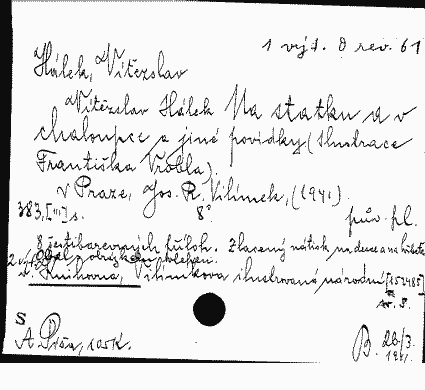 1 výt. 8 rev. 61
Hálek, Vítězslav
Vítězslav Hálek Na statku a v
chaloupce a jiné povídky (Ilustrace
Františka Vrobla).
V Praze, Jos. R. Vilímek, (1941)
383, [III] s. 8°
pův. pl.
8 šestibarevných příloh. Zlacený nátisk na desce a na hřbetě
Knihovna, Vilímkova ilustrovaná národní
S
B. 28/3
1941.